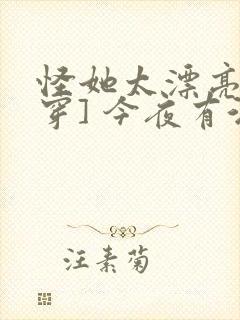 怪她太漂亮
穿] 今夜有
汪素菊